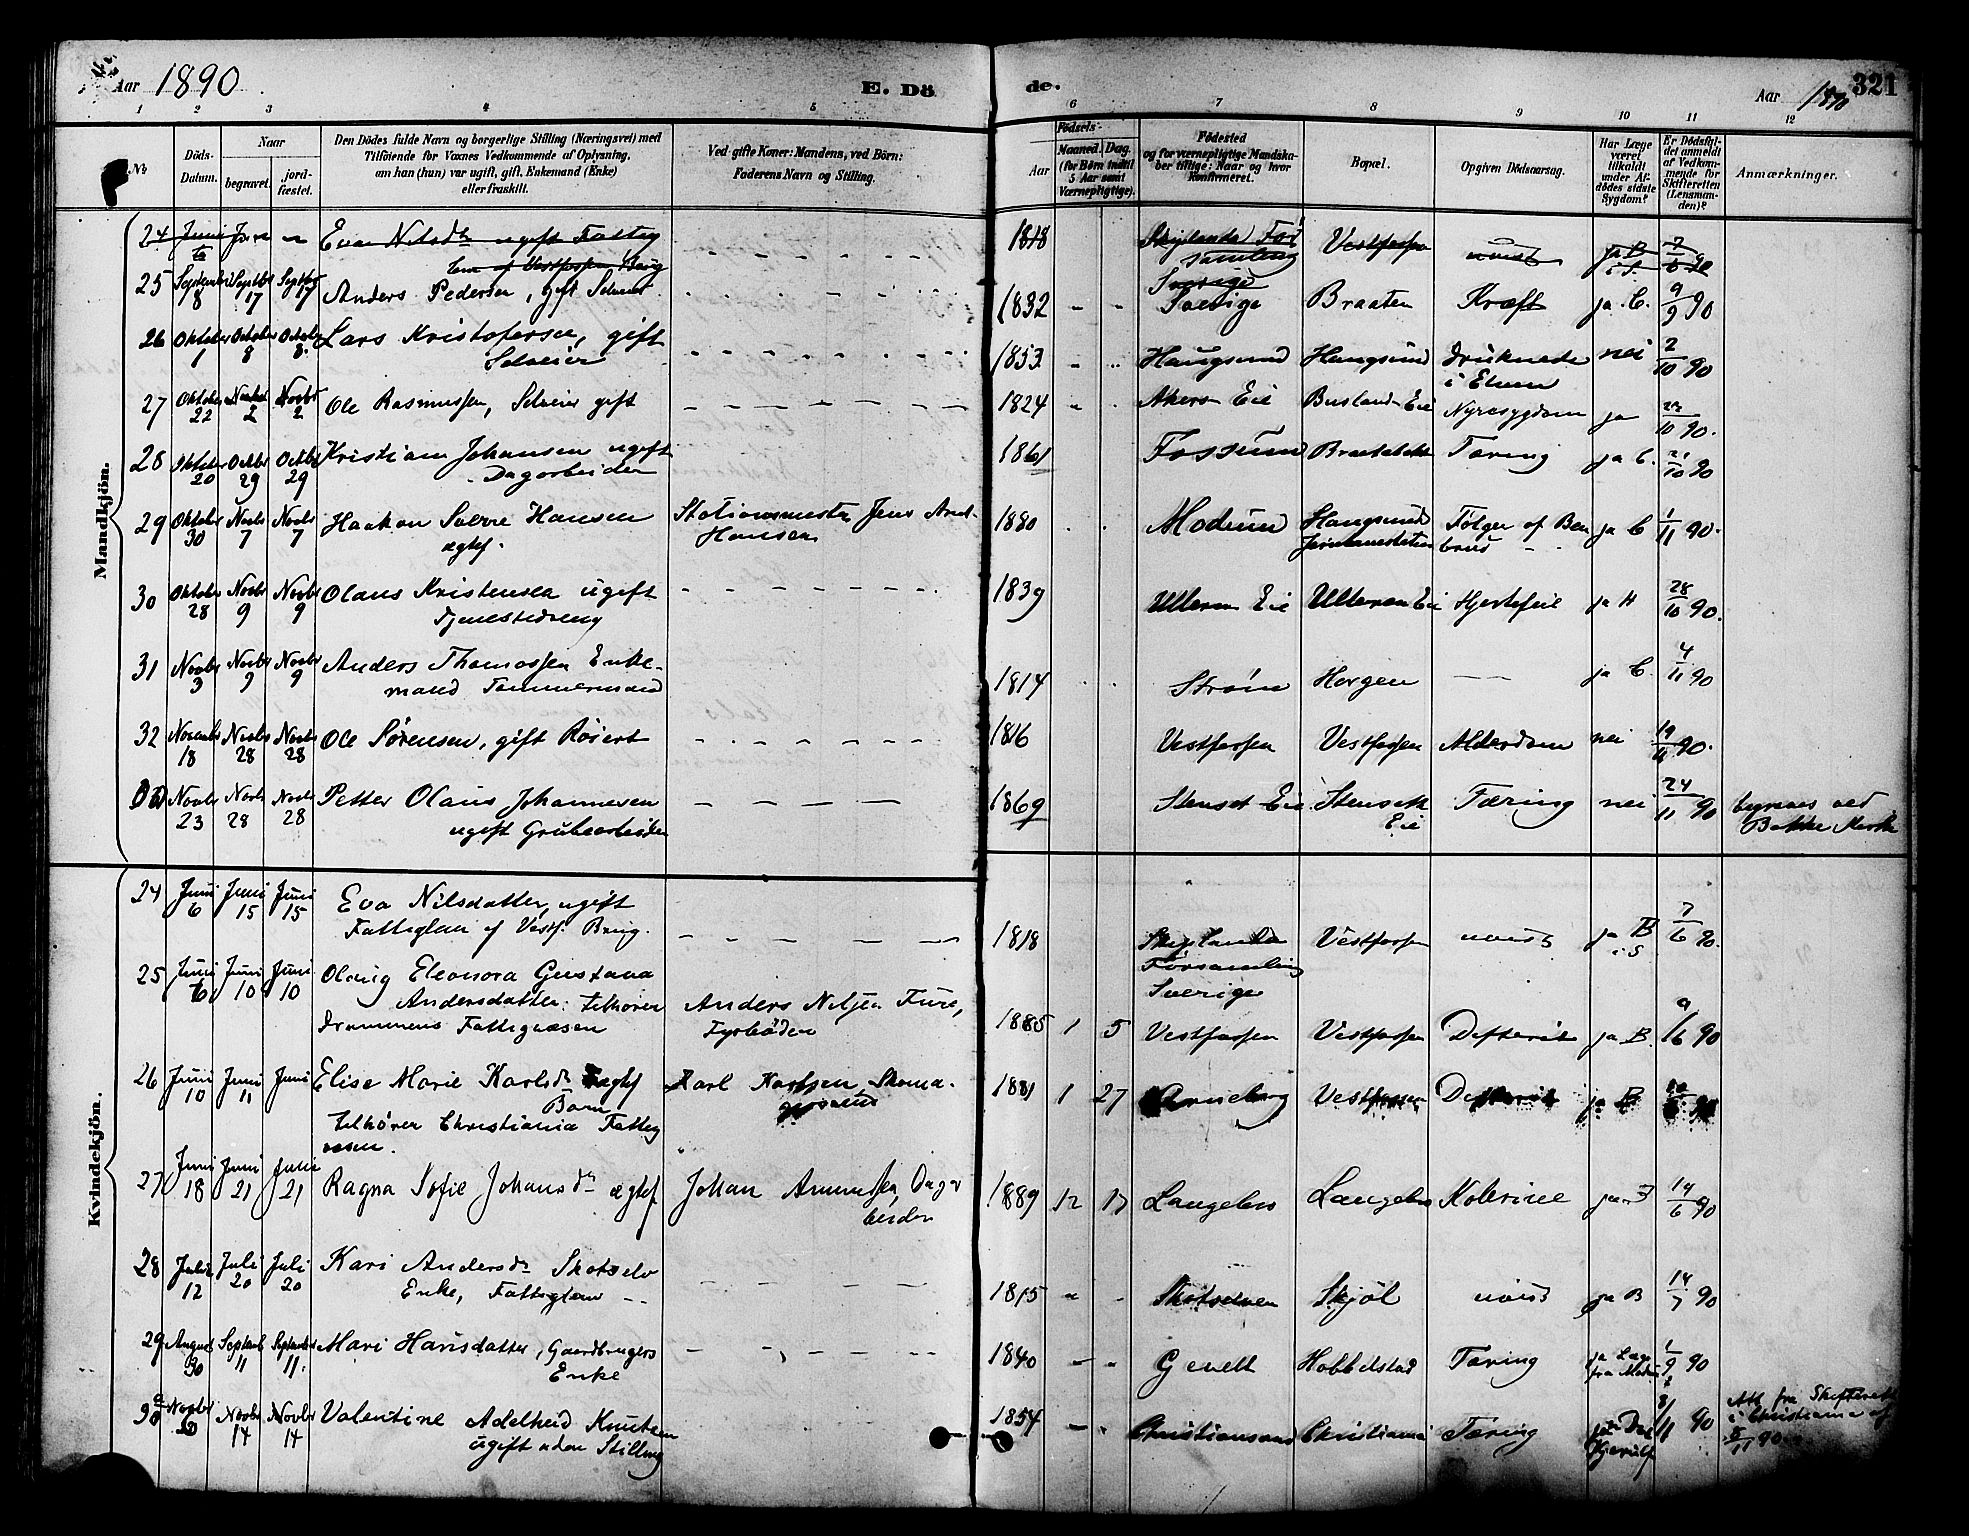 Aar 1890
E. Dö
de.
Aar 1890
321
1 2 3 4 5 6 7 8 9 10 11 12
No
Döds-Datum.
Naar
begravet.
jord-fæstet.
Den Dödes fulde Navn og borgerlige Stilling (Næringsvei) med
Tilföiende for Voxnes Vedkommende af Oplysning,
om han (hun) var ugift, gift, Enkemand (Enke)
eller fraskilt.
Ved gifte Koner: Mandens, ved Börn:
Faderens Navn og Stilling.
Födsels-
Aar
Maaned. Dag.
(for Börn indtil
5 Aar samt
Værnepligtige).
Födested
og for værnepligtige Mandska-
ber tillige: Naar og hvor
konfirmeret.
Bopæl.
Opgiven Dödsaarsag.
Har Læge
været
tilkaldt
under Af-
dödes sidste
Sygdom?
Er Dödsfal-
det anmeldt
af Vedkom-
mende for
Skifteretten
(Lensman-
den)?
Anmærkninger.
Mandkjön.
24 Juni 6 Eva Nilsdtr ugift Fattig
lem af Vestfossen Brug 1818 Vestfossen uvist
25 Septemb 8 Septbr 17 Septbr 17 Anders Pedersen, gift Selveier 1832 Sverige Braaten Kræft ja C. 9/9 90
26 Oktober 1 October 8 Octobr 8. Lars Kristofersen, gift
Selveier 1853 Haugsund Haugsund druknede
i Elven nei 2/10 90
27 Oktober 22 2 Novbr 2 Ole Rasmussen, Selveier gift 1824 Akers Eie Eie Nyresygdom ja 10 90.
28 Oktober 20 Octbr 29 Octbr 29 Kristian Johansen ugift
Dagarbeider 1861 Fossum Tæring ja C. 21/10 90
29 Oktober 30 Novbr 7 Novbr 7 Haakon Sverre Hansen
ægtef. Stationsmester Jens And.
Hansen 1880 Modum Haugsund Følger af Ben
brud ja C 1/11 90.
30 Oktober 28 Novbr 9 Novbr 9 Olaus Kristensen ugift
Tjenestedreng 1839 Ulleren Eie Ulleren Eie Hjertefeil ja H 28/10 90.
31 Novbr 3 Novbr 9 Novbr 9 Anders Thomassen Enke-
mand Tømmermand 1814 Strøm Horgen ja C. 4/11 90
32 Novembr 18 Novbr 28 Novbr 28 Ole Sørensen, gift 1816 Vestfossen Vestfossen Alderdom nei 19/11 90.
33 Novbr 23 Novbr 28 Novbr 28 Petter Olaus Johannesen
ugift Grubearbeider 1869 Stenset Eie Stenseth
Eie Tæring nei 24/11 90 ved
Bakke Kirke
Kvindekjön.
24 Juni 6 Juni 15 Juni 15 Eva Nilsdatter, ugift
Fattiglem af Vestf. Brug. 1818
Forsamling
Sverige Vestfossen uvist ja B
i S 7/6 90.
25 Juni 6 Juni 10 Juni 10 Olaug Eleonora Gustava
Andersdatter: tilhører
Drammens Fattigvæsen Anders Nilsen Fure,
Fyrbøder 1885 1 5 Vestfossen Vestfossen Difterit ja B. 9/6 90
26 Juni 10 Juni 11 Juni Elise Marie Karlsdr ægtef
Barn
tilhører Christiania Fattig
væsen. Karl Karlsen Skoma-
gersvend 1881 1 27 Arneberg Vestfossen Difterit ja B
27 Juni 18 Juni 21 Juni 21 Ragna Sofie Johansdr ægtef. Johan Amundsen, Dagar
beider 1889 12 17 Langebro Langebro Kolerine 19/6 90
28 Juli 12 Juli 20 Juli 20 Kari Andersdr Skotselv
Enke, Fattiglem 1815 Skotselven Skjöl uvist ja B 14/7 90
29 August 30 Septemb 11 Septembr 11. Mari Hansdatter, Gaardbrugers
Enke 1840 Gevelt Hobbelstad Tæring ja Læge
fra Modum 1/9 90
30 Novbr Novbr 14 Novbr 14 Valentine Adelheid Knutsen
ugift uden Stilling 1854 Christiansand Christiania Tæring
Kjerulf 8/11 90 Att. fra Skifteret
i Christiania af
8/11 90